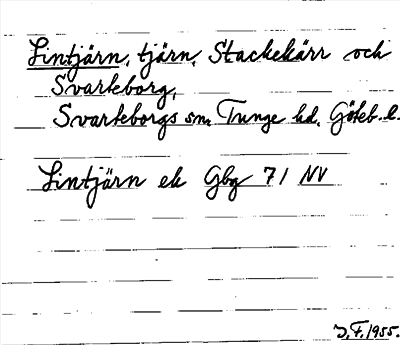 Lintjärn, tjärn, Stackekärr och
Svarteborg,
Svarteborgs sn. Tunge hd. Göteb. l.
Lintjärn ek Gbg 71 NV
J. F. 1955.